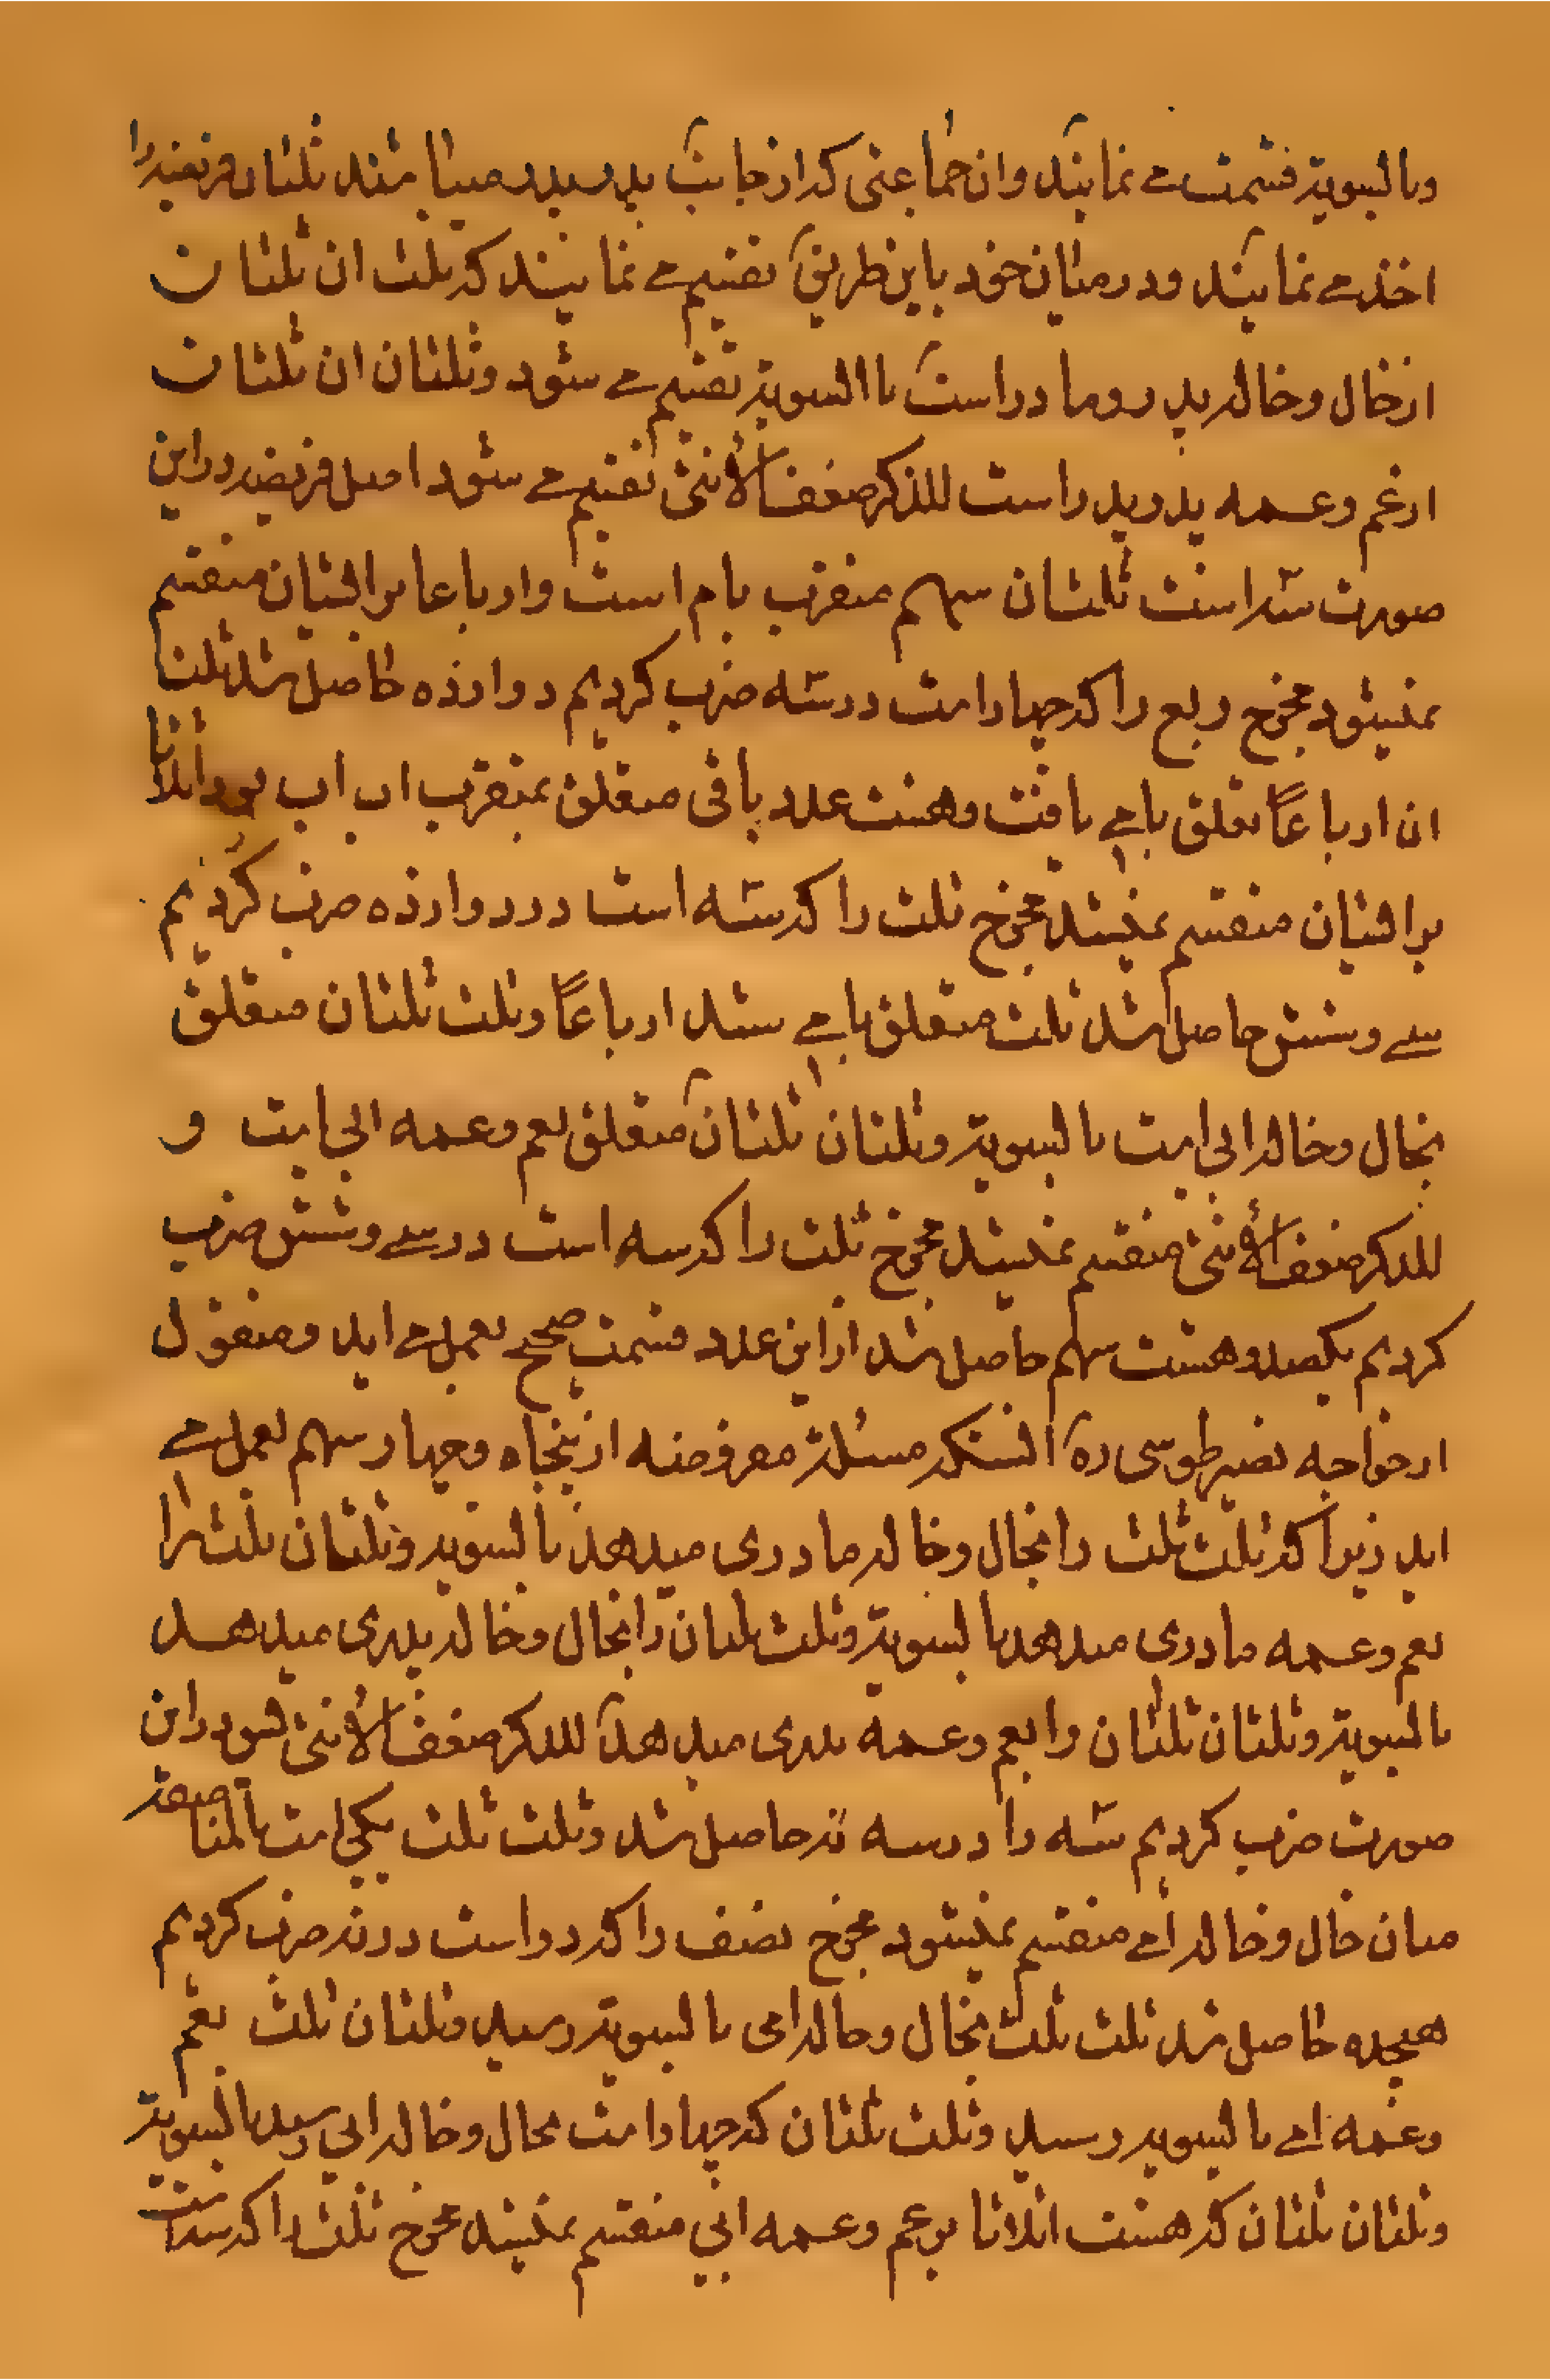 وبالسویة قسمت مے نمایند وان جماعتی که از جانب پدر پدر میباشند ثلثان فریضه را
اخذ مے نمایند ودر میان خود باین طریق تقسیم مے نمایند که ثلث ان ثلثان
از خال وخاله پدر ومادر است باالسویة تقسیم مے شود وثلثان ان ثلثان
از عم وعمه پدر پدر است للذکر ضعف الأنثی تقسیم مے شود اصل فریضه در این
صورت سه است ثلثان سهم متقرب بام است وارباعا برایشان منقسم
نمیشود مخرج ربع را که چهار است در سه ضرب کردیم دوازده حاصل شد ثلث
ان ارباعًا تعلق بامے یافت وهشت عدد باقی متعلق بمتقرب اب اب بود اثلاثا
برایشان منقسم نمیشد مخرج ثلث را که سه است در دوازده ضرب کردیم
سے وشش حاصل شد ثلث متعلق بامے شد ارباعًا وثلث ثلثان متعلق
بخال وخاله ابی است بالسویة وثلثان ثلثان متعلق بعم وعمه ابی است و
للذکر ضعف الأنثی منقسم نمیشد مخرج ثلث را که سه است در سے وشش ضرب
کردیم یکصد وهشت سهم حاصل شد از این عدد قسمت صحیح بعمل مے اید ومنقول
از خواجه نصیر طوسی ره انستکه مسئلة مفروضه از پنجاه وچهار سهم بعمل مے
اید زیرا که ثلث ثلث را بخال وخاله مادری میدهد بالسویه وثلثان ثلث را
بعم وعمه مادری میدهد بالسویة وثلث ثلثان را بخال وخاله پدری میدهد
بالسویة وثلثان ثلثان را بعم وعمه پدری میدهد للذکر ضعف الأنثی پس در این
صورت ضرب کردیم سه را در سه نه حاصل شد وثلث ثلث یکی است بالمناصفة
میان خال وخاله امے منقسم نمیشود مخرج نصف را که دو است در نه ضرب کردیم
هیجده حاصل شد ثلث ثلث بخال وخاله امی بالسویة رسید وثلثان ثلث بعم
وعمه امے بالسویه رسید وثلث ثلثان که چهار است بخال وخاله ابی رسید بالسویة
وثلثان ثلثان که هشت اثلاثا بر عم وعمه ابی منقسم نمیشد مخرج ثلث را که سه است